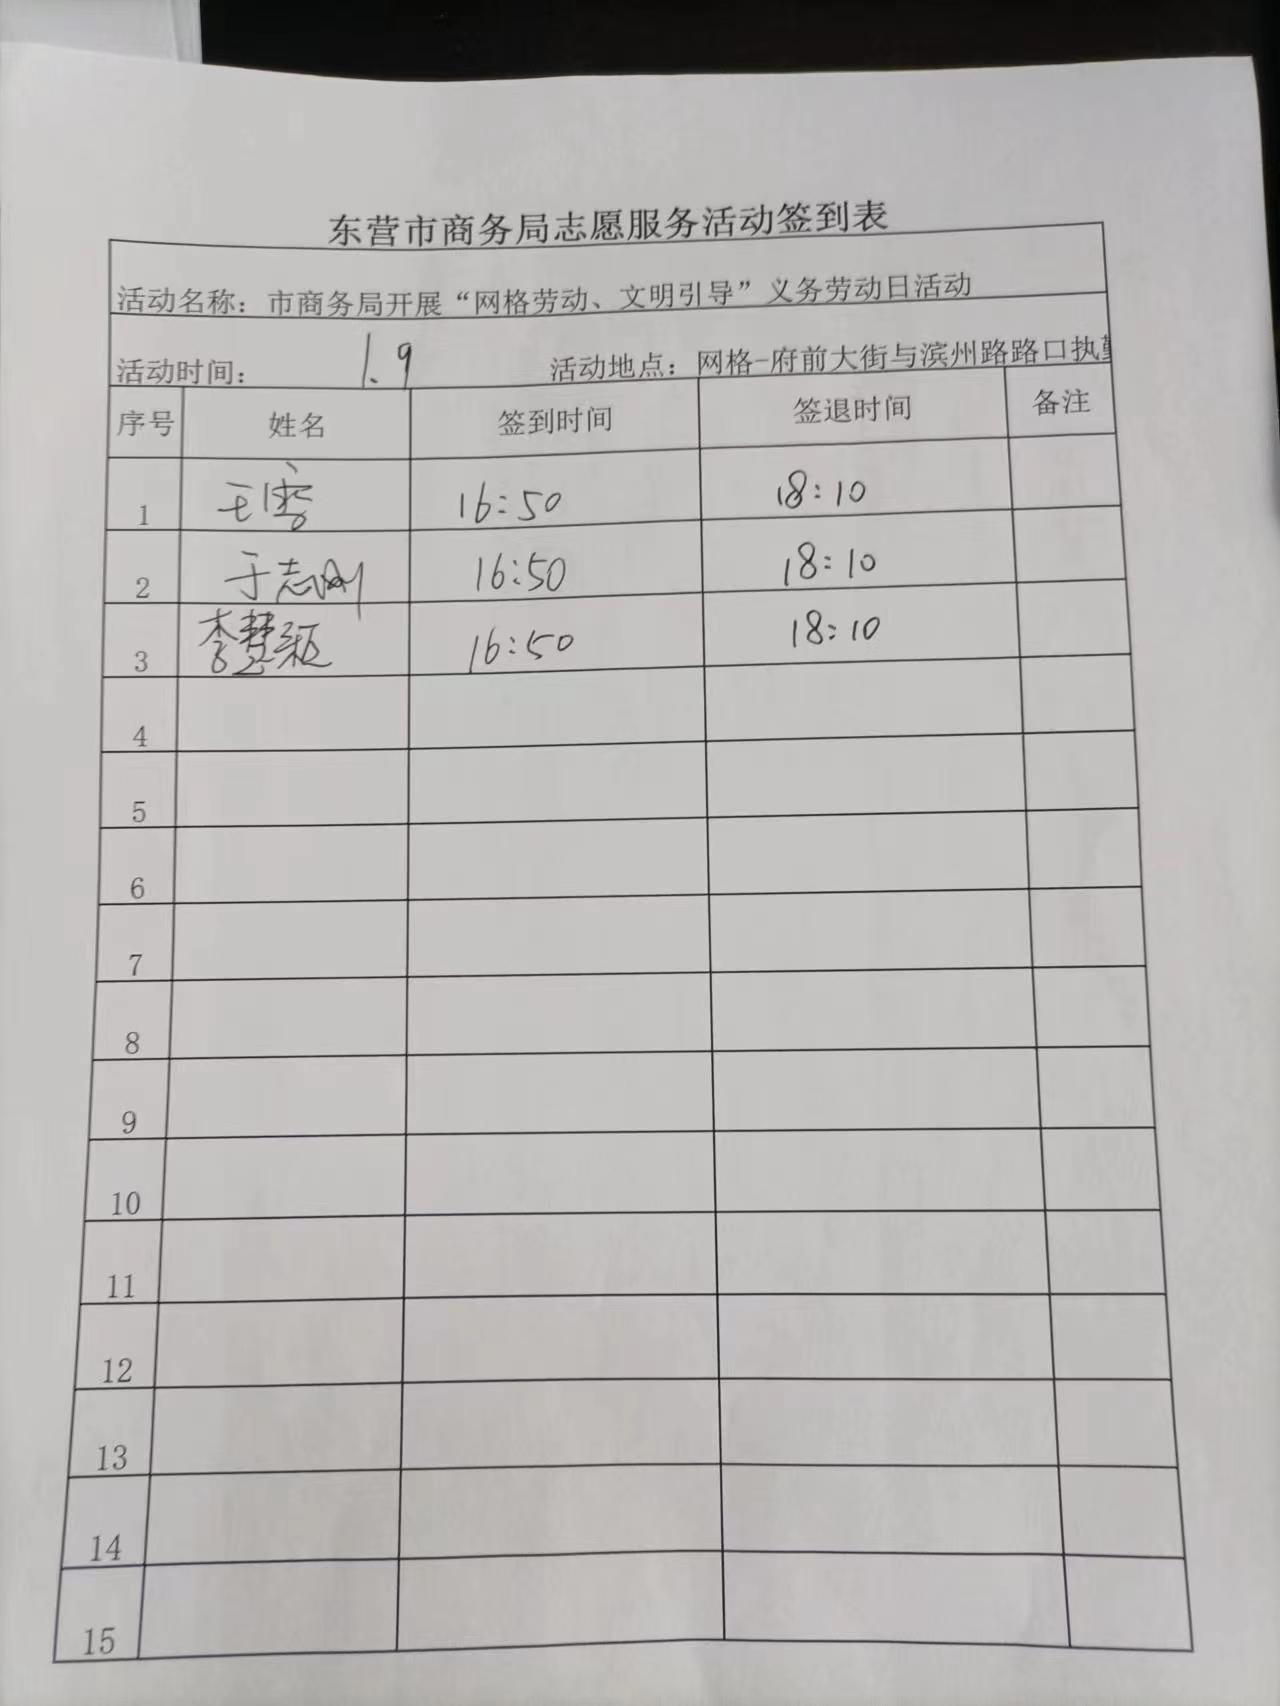 东营市商务局志愿服务活动签到表
活动名称：市商务局开展“网格劳动、文明引导”义务劳动日活动
活动时间： 1.9 活动地点：网格-府前大街与滨州路路口执勤
序号 姓名 签到时间 签退时间 备注
1 王 16:50 18:10
2 于志刚 16:50 18:10
3 李慧颖 16:50 18:10
4
5
6
7
8
9
10
11
12
13
14
15